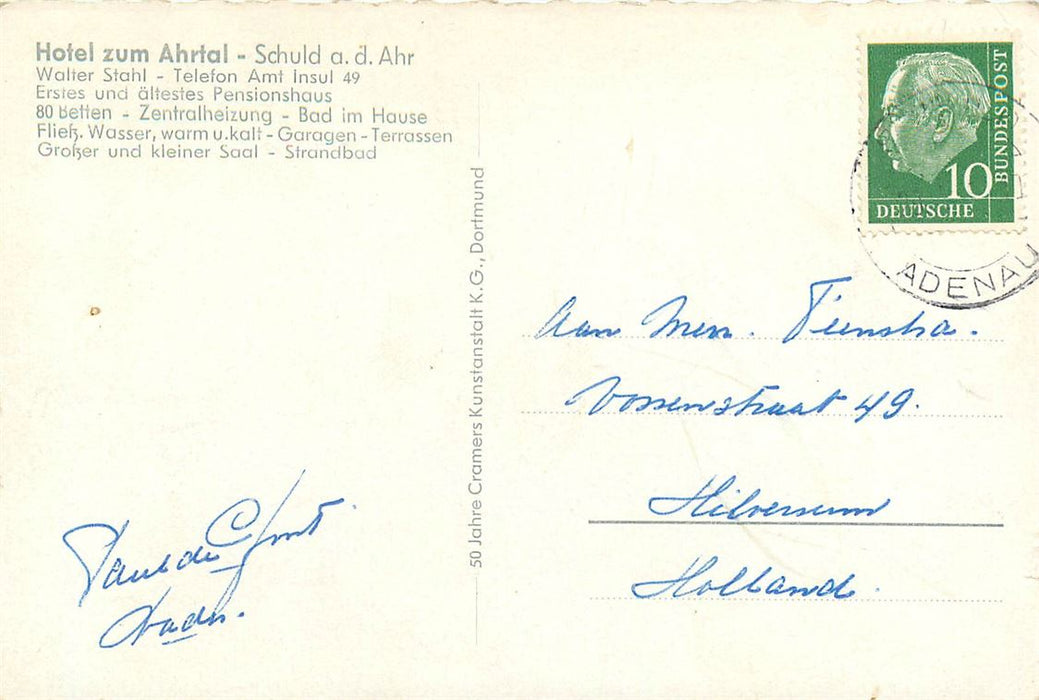 Hotel zum Ahrtal - Schuld a. d. Ahr
Walter Stahl - Telefon Amt Insul 49
Erstes und ältestes Pensionshaus
80 Betten - Zentralheizung - Bad im Hause
Fließ. Wasser, warm u. kalt - Garagen - Terrassen
Großer und kleiner Saal - Strandbad
50 Jahre Cramers Kunstanstalt K.G., Dortmund
10
DEUTSCHE
BUNDESPOST
ADENAU
Aan Men. Tienstra.
Vossenstraat 49.
Hilversum
Holland.